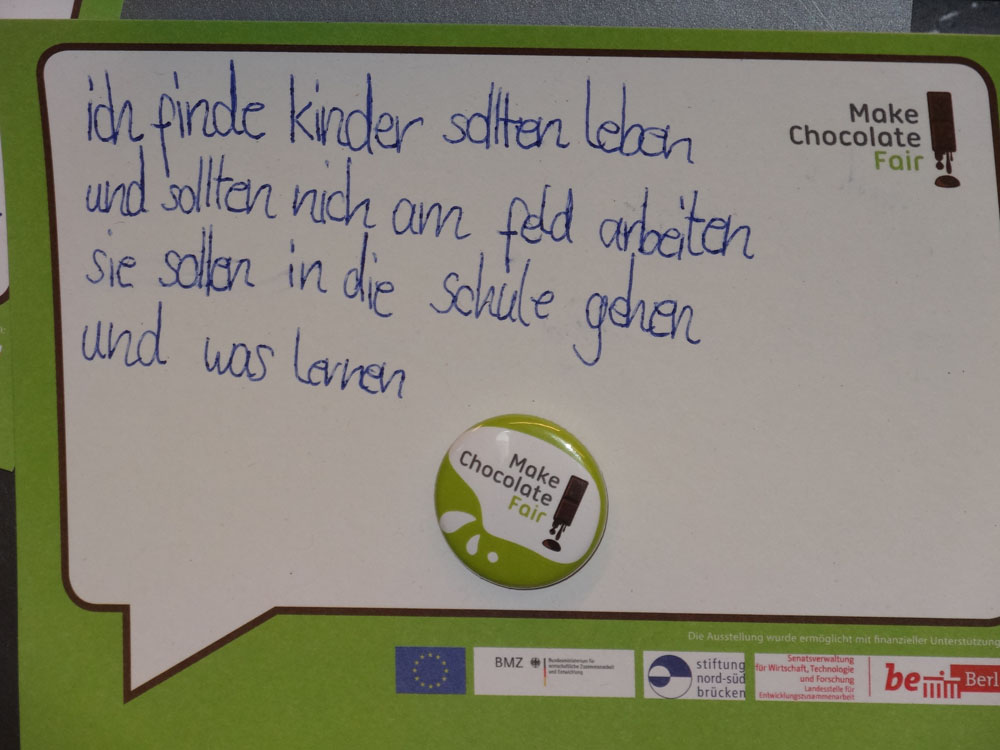 ich finde kinder sollten leben
und sollten nich am feld arbeiten
sie sollen in die schule gehen
und was lernen
Make
Chocolate
Fair
Make
Chocolate
Fair
Die Ausstellung wurde ermöglicht mit finanzieller Unterstützung
BMZ
Bundesministerium für
wirtschaftliche Zusammenarbeit
und Entwicklung
stiftung
nord-süd
brücken
Senatsverwaltung
für Wirtschaft, Technologie
und Forschung
Landesstelle für
Entwicklungszusammenarbeit
be Berl